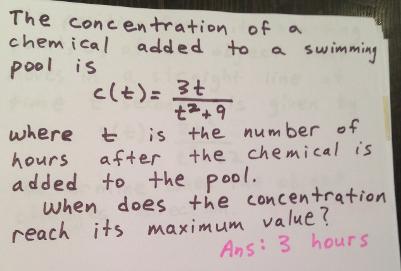 The concentration of a
chemical added to a swimming
pool is
c(t) = 3t / t²+9
where t is the number of
hours after the chemical is
added to the pool.
When does the concentration
reach its maximum value?
Ans: 3 hours